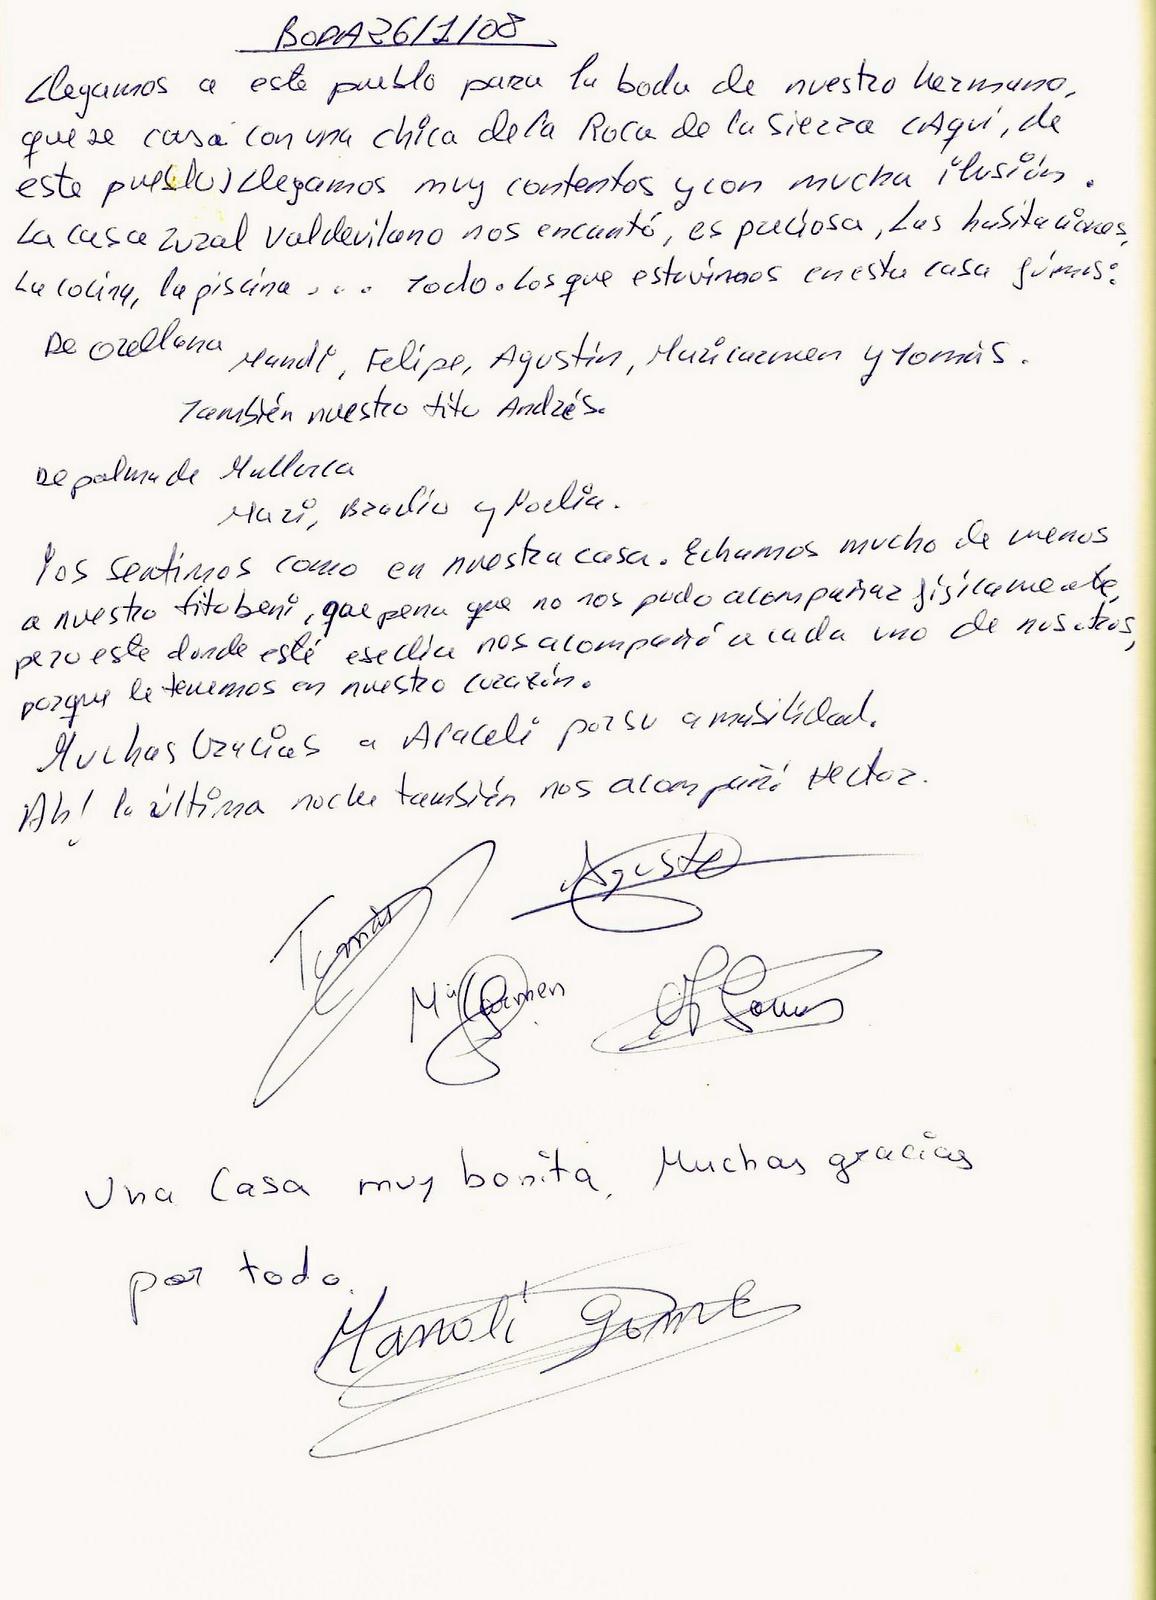 BODA 26/1/08
Llegamos a este pueblo para la boda de nuestro hermano,
que se casa con una chica de la Roca de la Sierra (Aquí, de
este pueblo) Llegamos muy contentos y con mucha ilusión.
La casa rural Valdevilano nos encantó, es preciosa, Las habitaciones,
La cocina, la piscina .... Todo. Los que estuvimos en esta casa fúimos:
De Orellana Mandi, Felipe, Agustín, Maricarmen y Tomás.
También nuestro tito Andrés.
De palma de Mallorca
Mari, Braulio y Noelia.
Nos sentimos como en nuestra casa. Echamos mucho de menos
a nuestro tito beni, que pena que no nos pudo acompañar físicamente,
pero este donde esté ese día nos acompañó a cada uno de nosotros,
porque le tenemos en nuestro corazón.
Muchas Gracias a Araceli por su amabilidad.
Ah! la última noche también nos acompañó Hector.
Agustín
Tomás
Mª Carmen
Una Casa muy bonita, Muchas gracias
por todo.
Manoli Gome